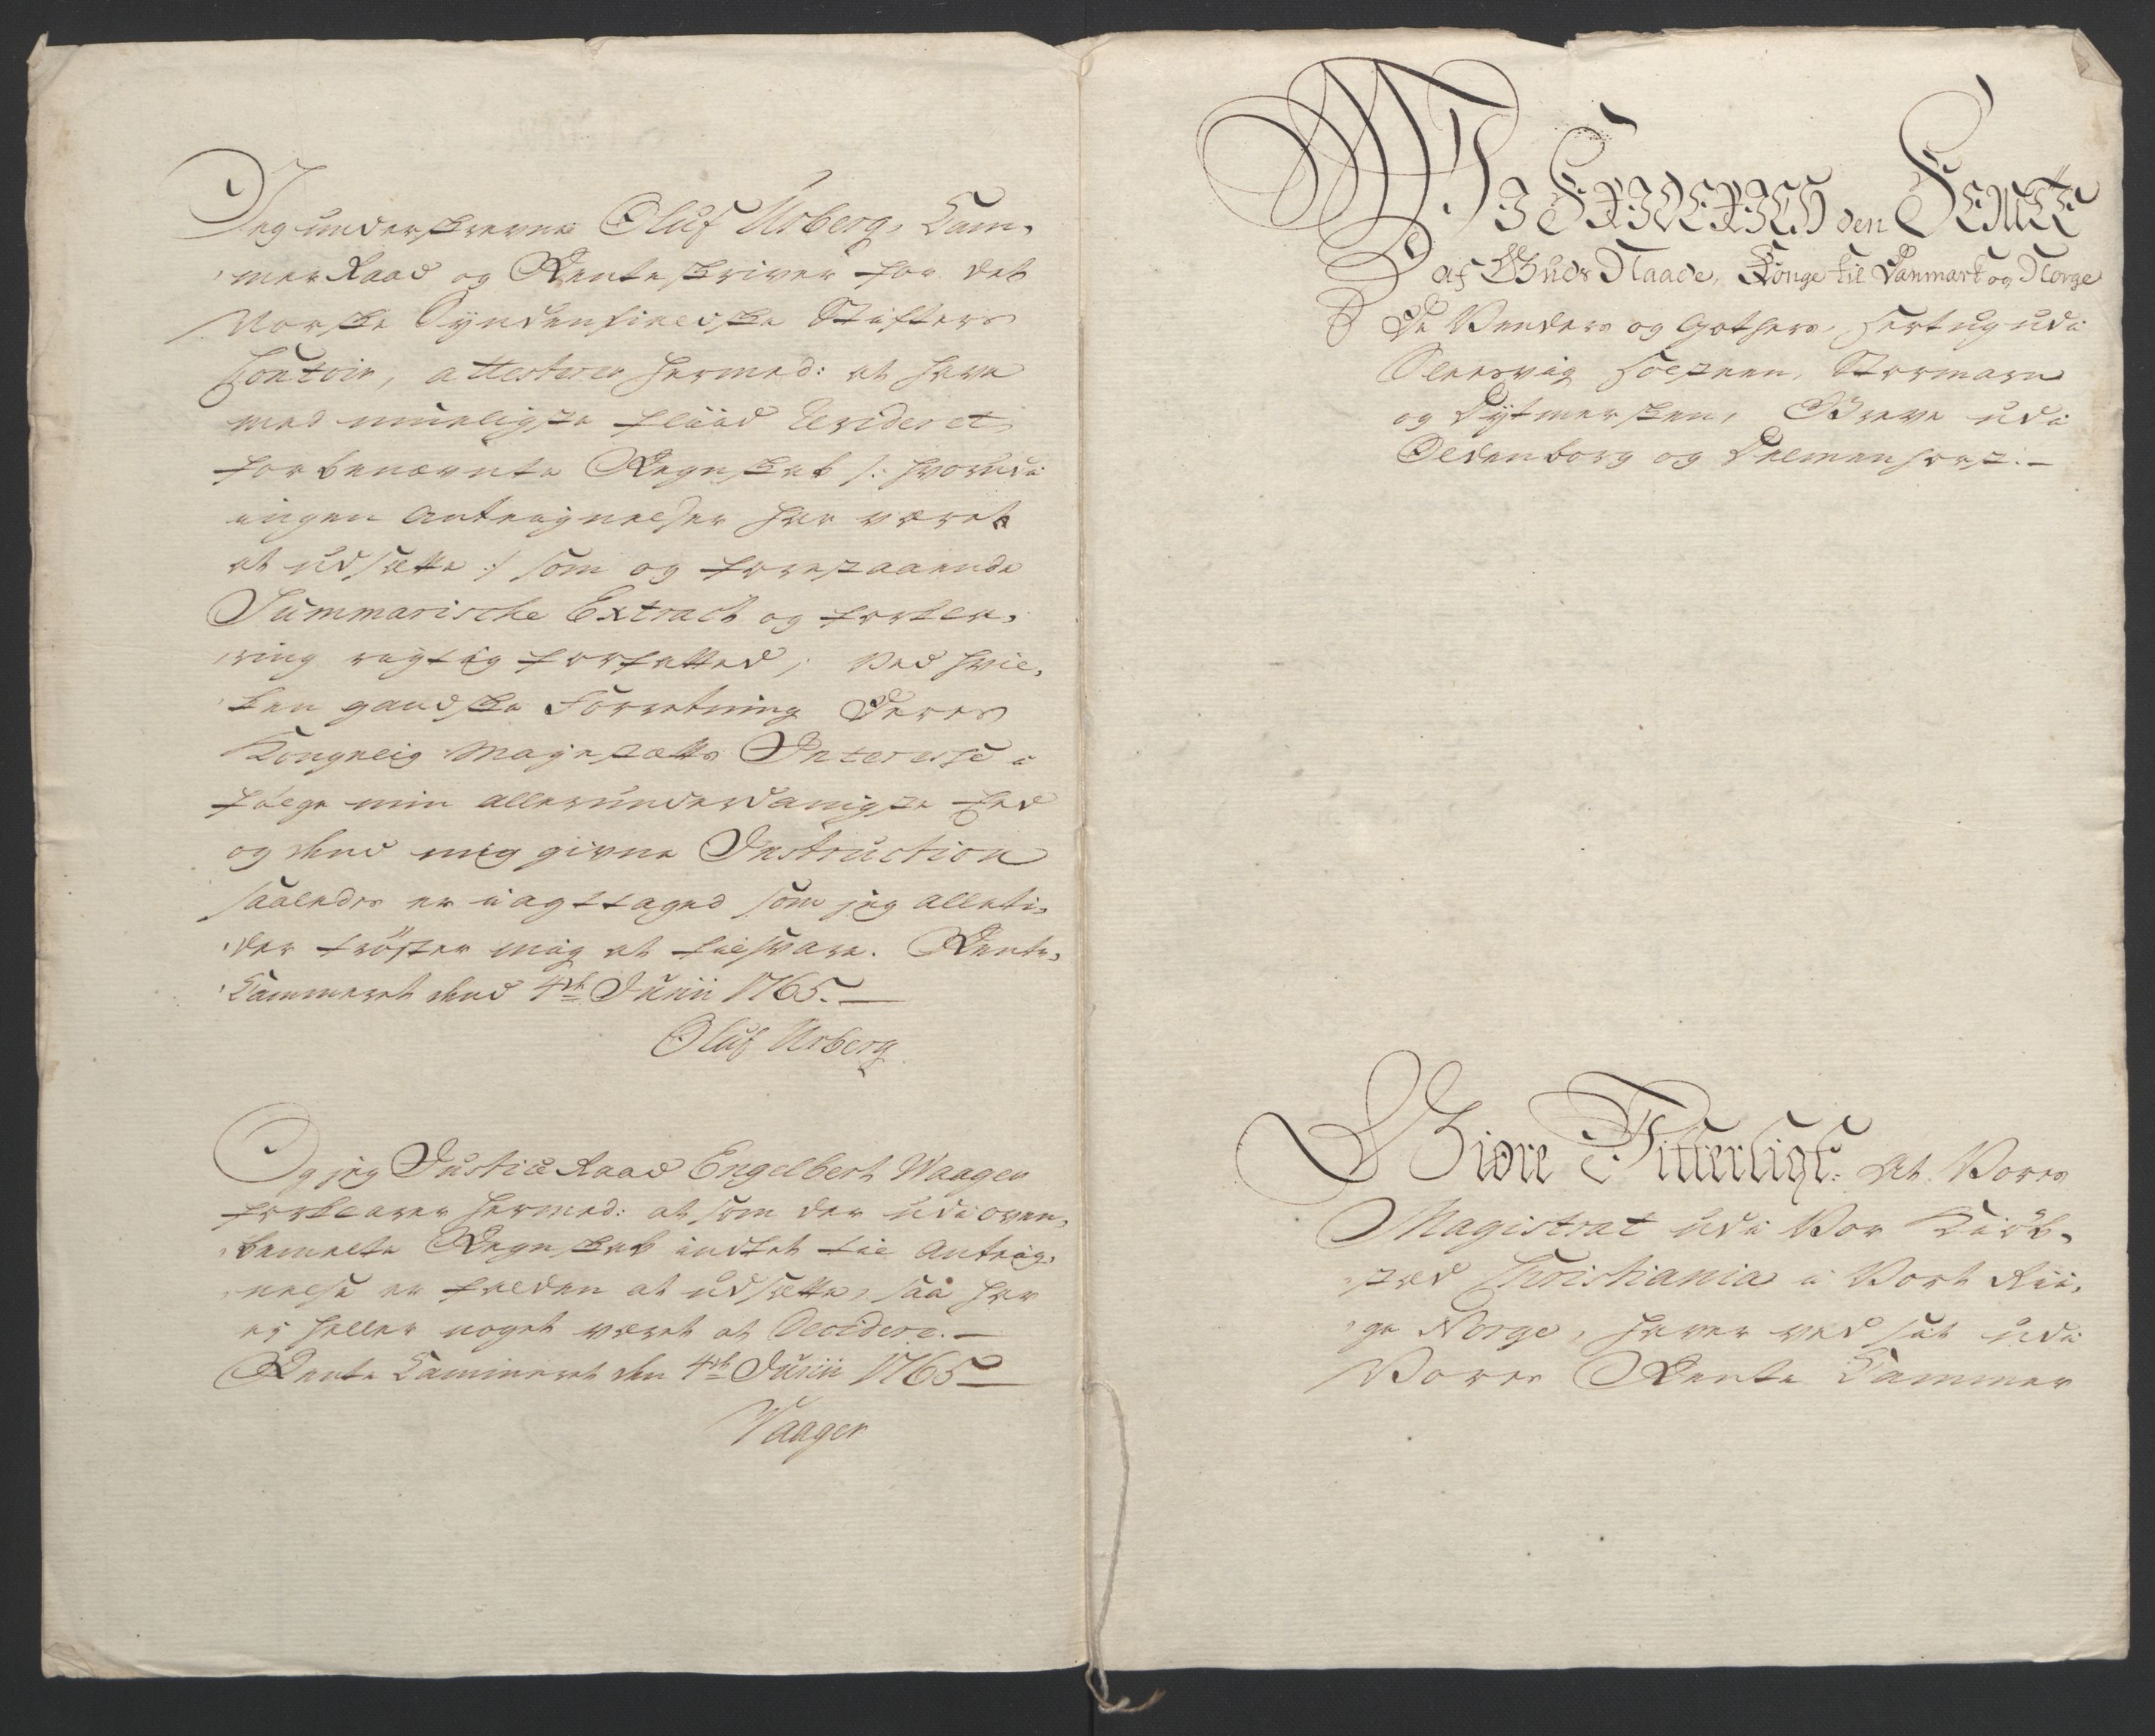 Jeg underskrevne Oluf Urberg, Cam-
mer Raad og Rente skriver for det
Norske Syndenfieldske Stifters
Contoir, attesterer hermed: at have
med mueligste Flüid Revideret
forbenævnte Regnskab /: hvorudi
ingen Antegnelser har været
at udsætte :/ som og forestaaende
Summarische Extract og forkla-
ring rigtig forfatted; Ved hvil-
ken gandske Forretning Deres
Kongelig Mayestætts Interesse i
følge min allerunderdanigste Eed
og dend mig givne Instruction
saaledes er iagttaged som jeg alleti-
der trøster mig at tilsvare. Rente-
Cammeret dend 4de Junii 1765.
Oluf Urberg
Og jeg Justice Raad Engelbert Waager
forklarer hermed: at som der udi oven-
bemelte Regnskab indtet til Anteig-
nelse er falden at udsætte, saa har
ej heller noget været at Decidere.
Rente Cammeret den 4de Junii 1765
Waager
WJ FRIDERICH den FEMTE
af Guds Naade, Konge til Danmark og Norge
De Venders og Gothers, Hertug udi
Slesvig Holsteen, Stormarn
og Dytmersken, Greve udi
Oldenborg og Delmenhorst.
Giøre Vitterligt: At Vores
Magistrat udi Vor Kiøb-
sted Christiania i Vort Rii-
ge Norge, haver ved sit udi
Vores Rente Cammer